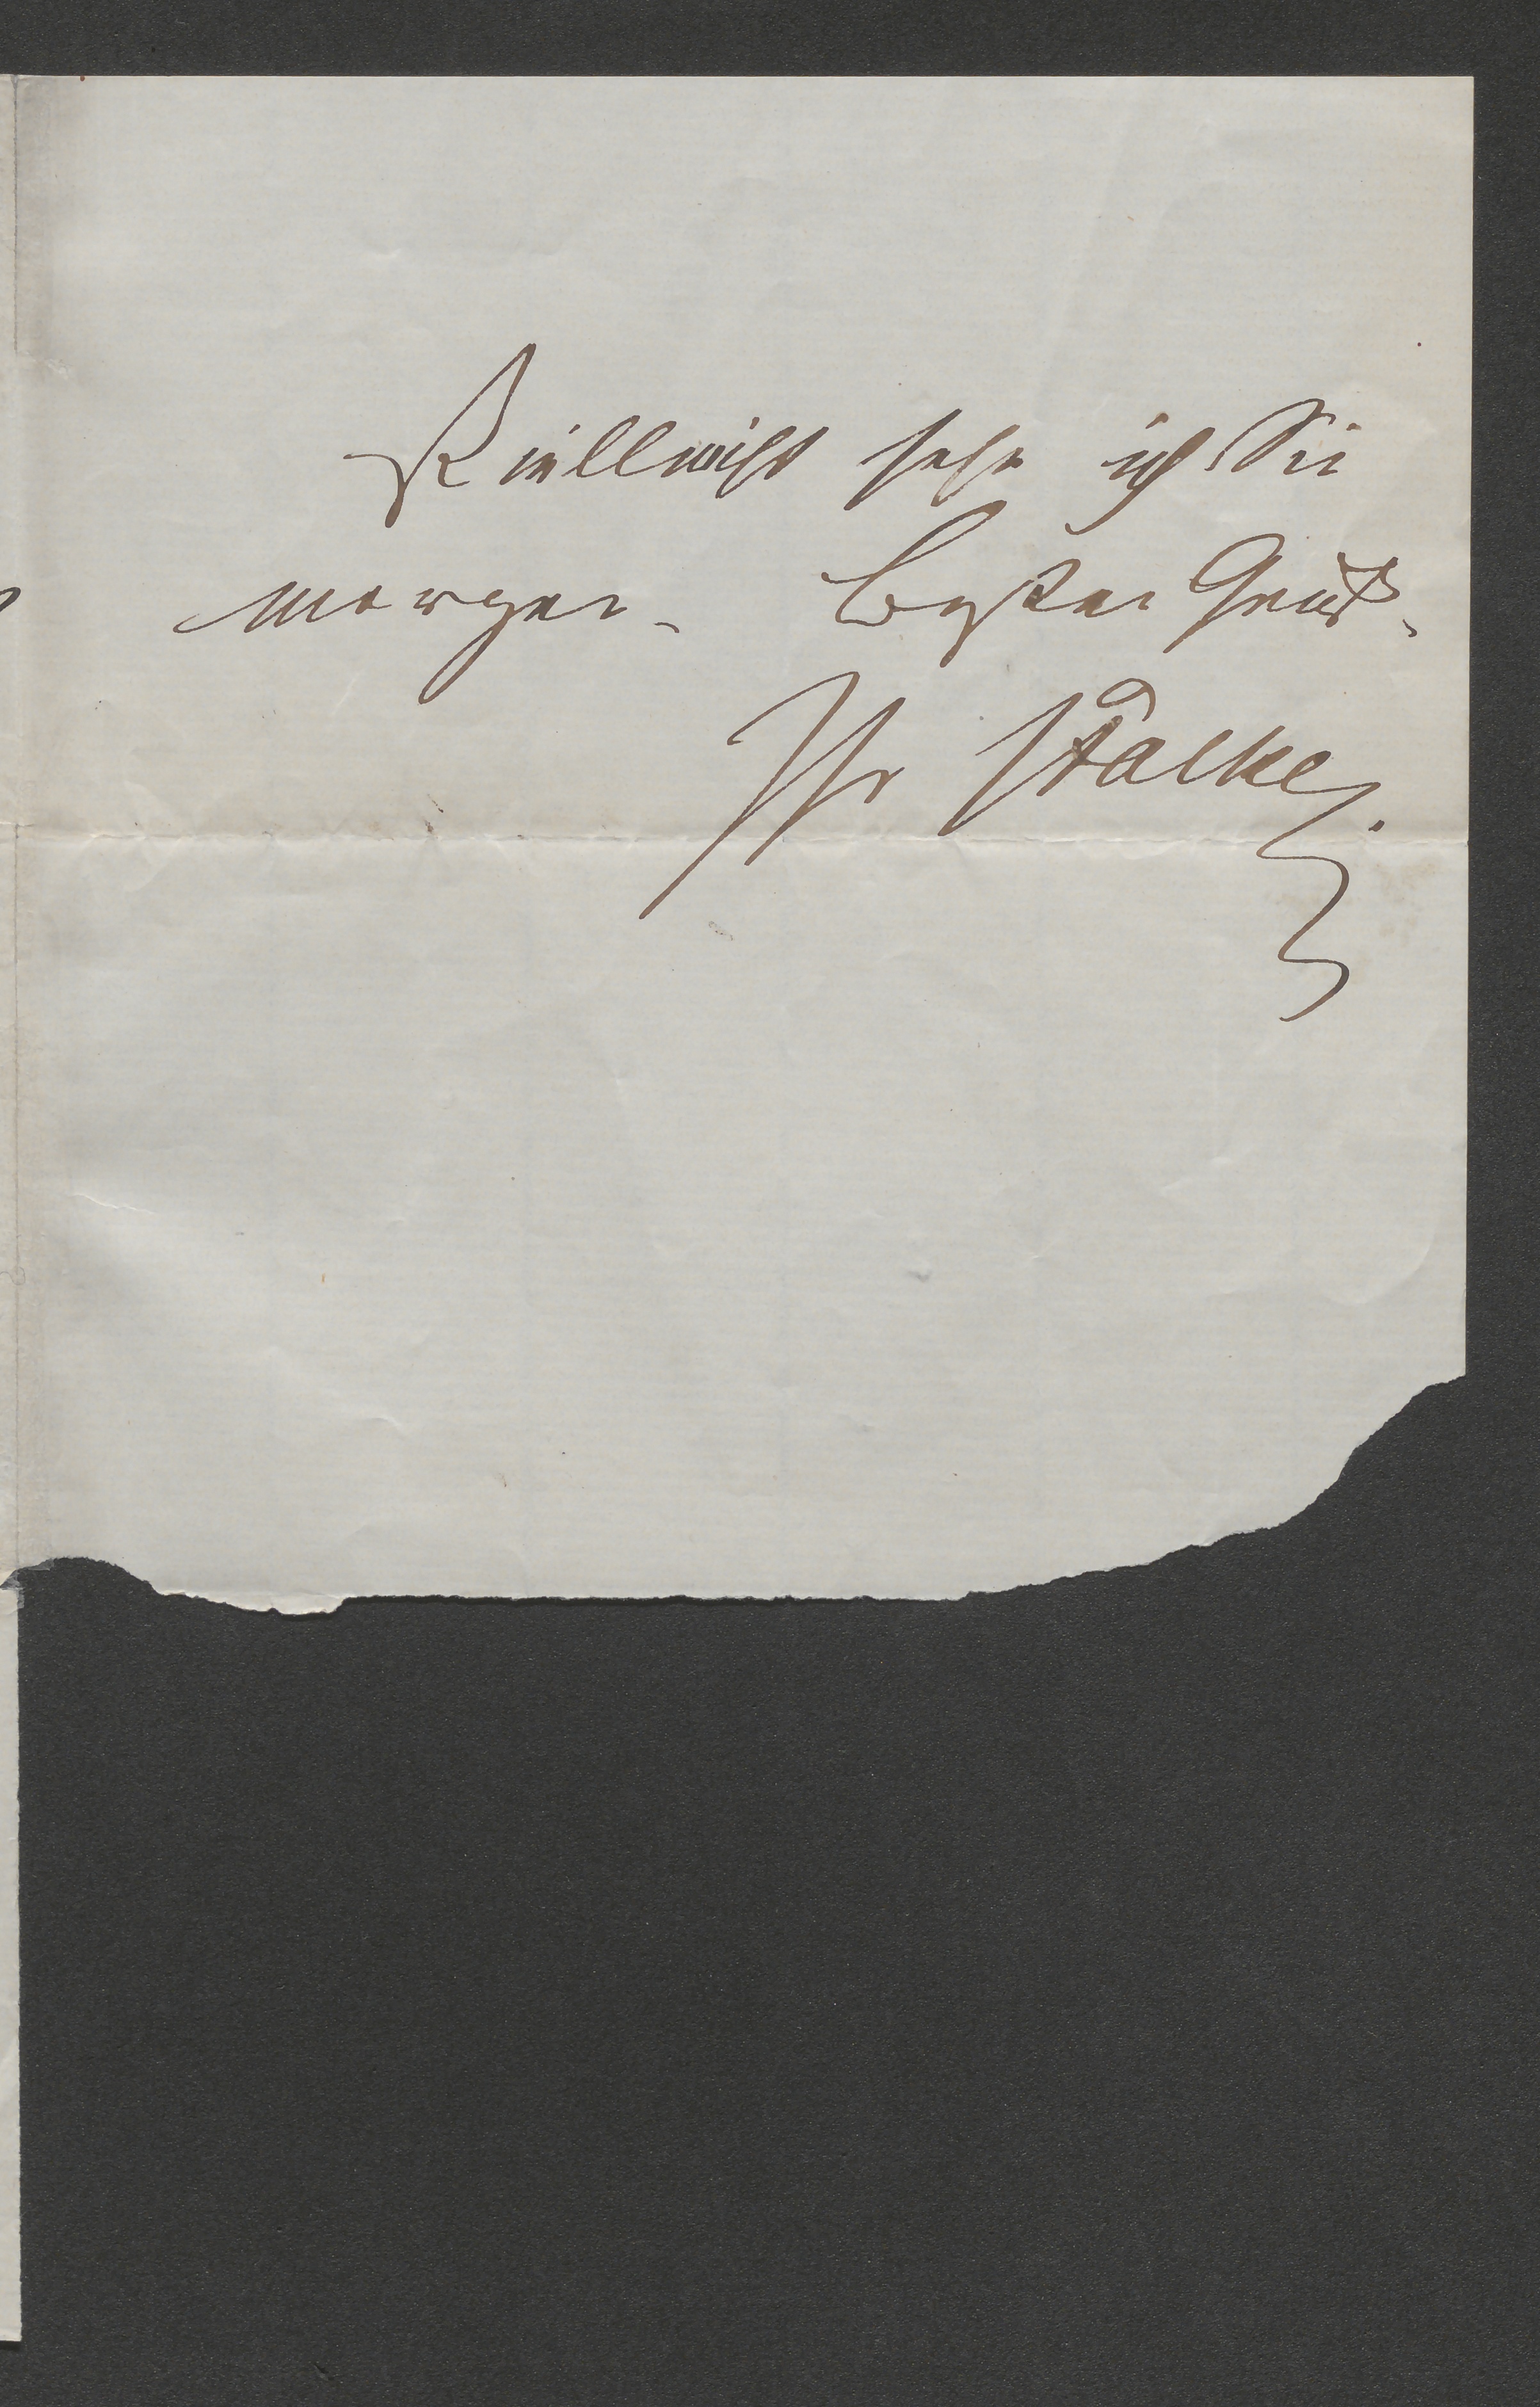 Vielleicht sehe ich Sie
morgen. Besten Gruß.
Ihr